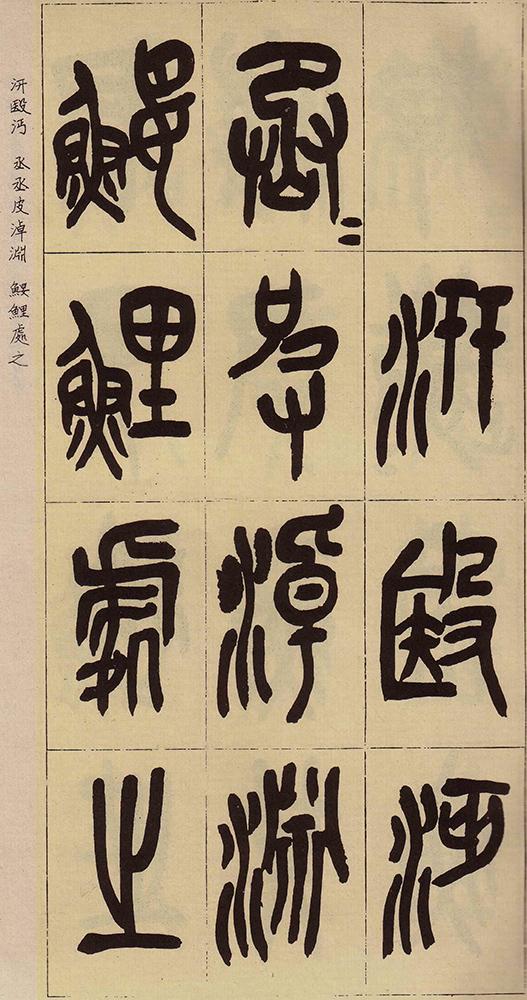 汧殹沔
丞〓皮淖
淵
鰋鯉處之
汧殹沔 丞丞皮淖淵 鰋鯉處之